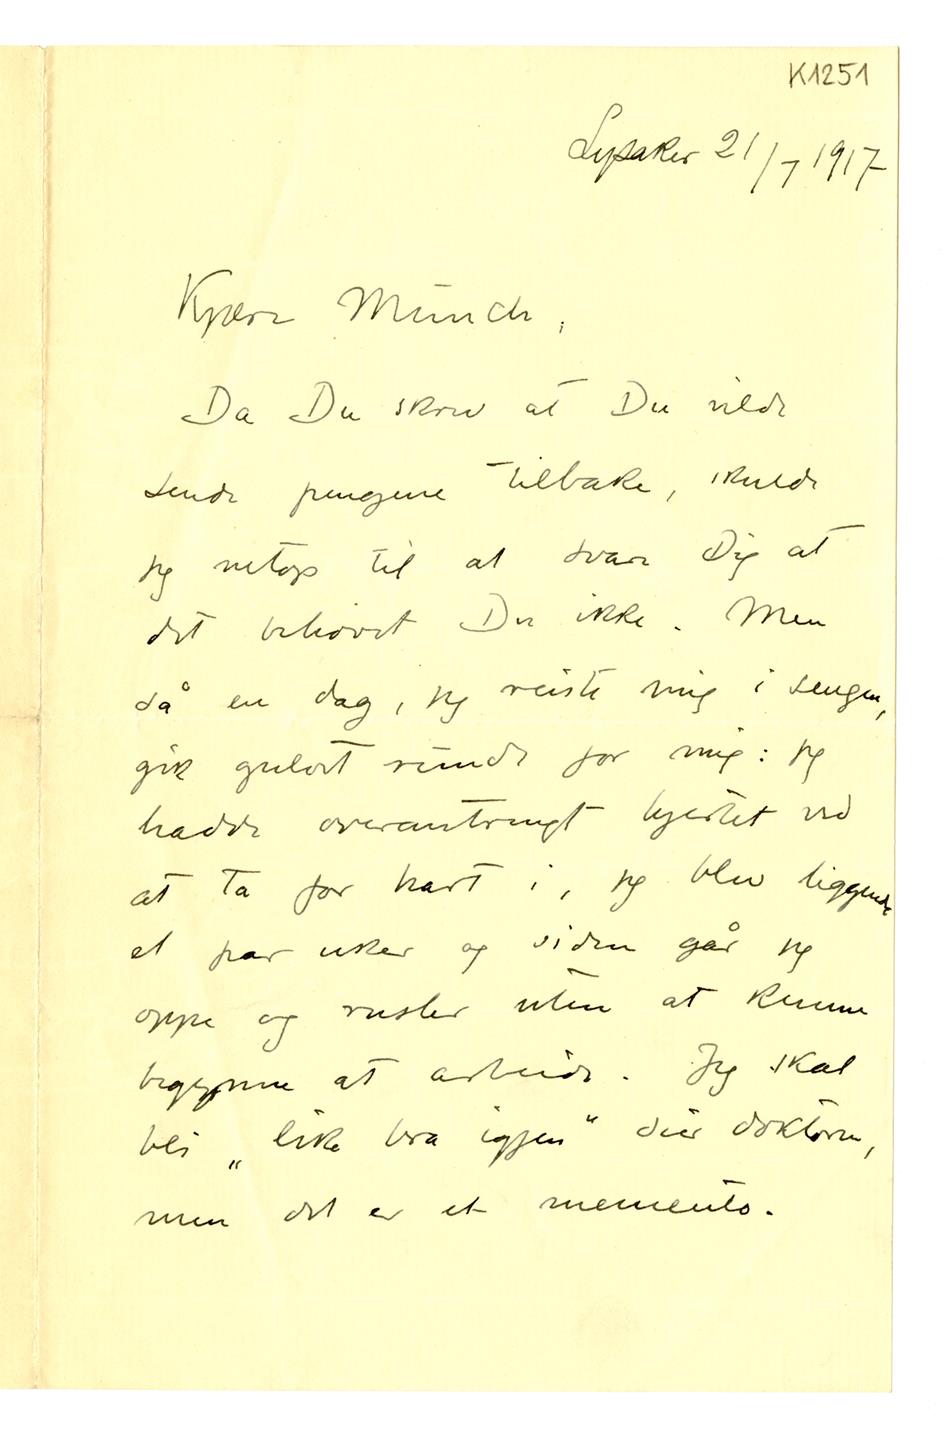 K1251
Lysaker 21/7 1917
Kjære Munch,
Da Du skrev at Du vilde
sende pengene tilbake, skulde
jeg netop til at svare Dig at
det behøvet Du ikke. Men
så en dag, jeg reiste mig i sengen,
gik gulvet rundt for mig: jeg
hadde overanstrengt hjertet ved
at ta for hart i, jeg blev liggende
et par uker og siden går jeg
oppe og rusler uten at kunne
begynne at arbeide. Jeg skal
bli „like bra igjen“ sier doktoren,
men det er et memento.